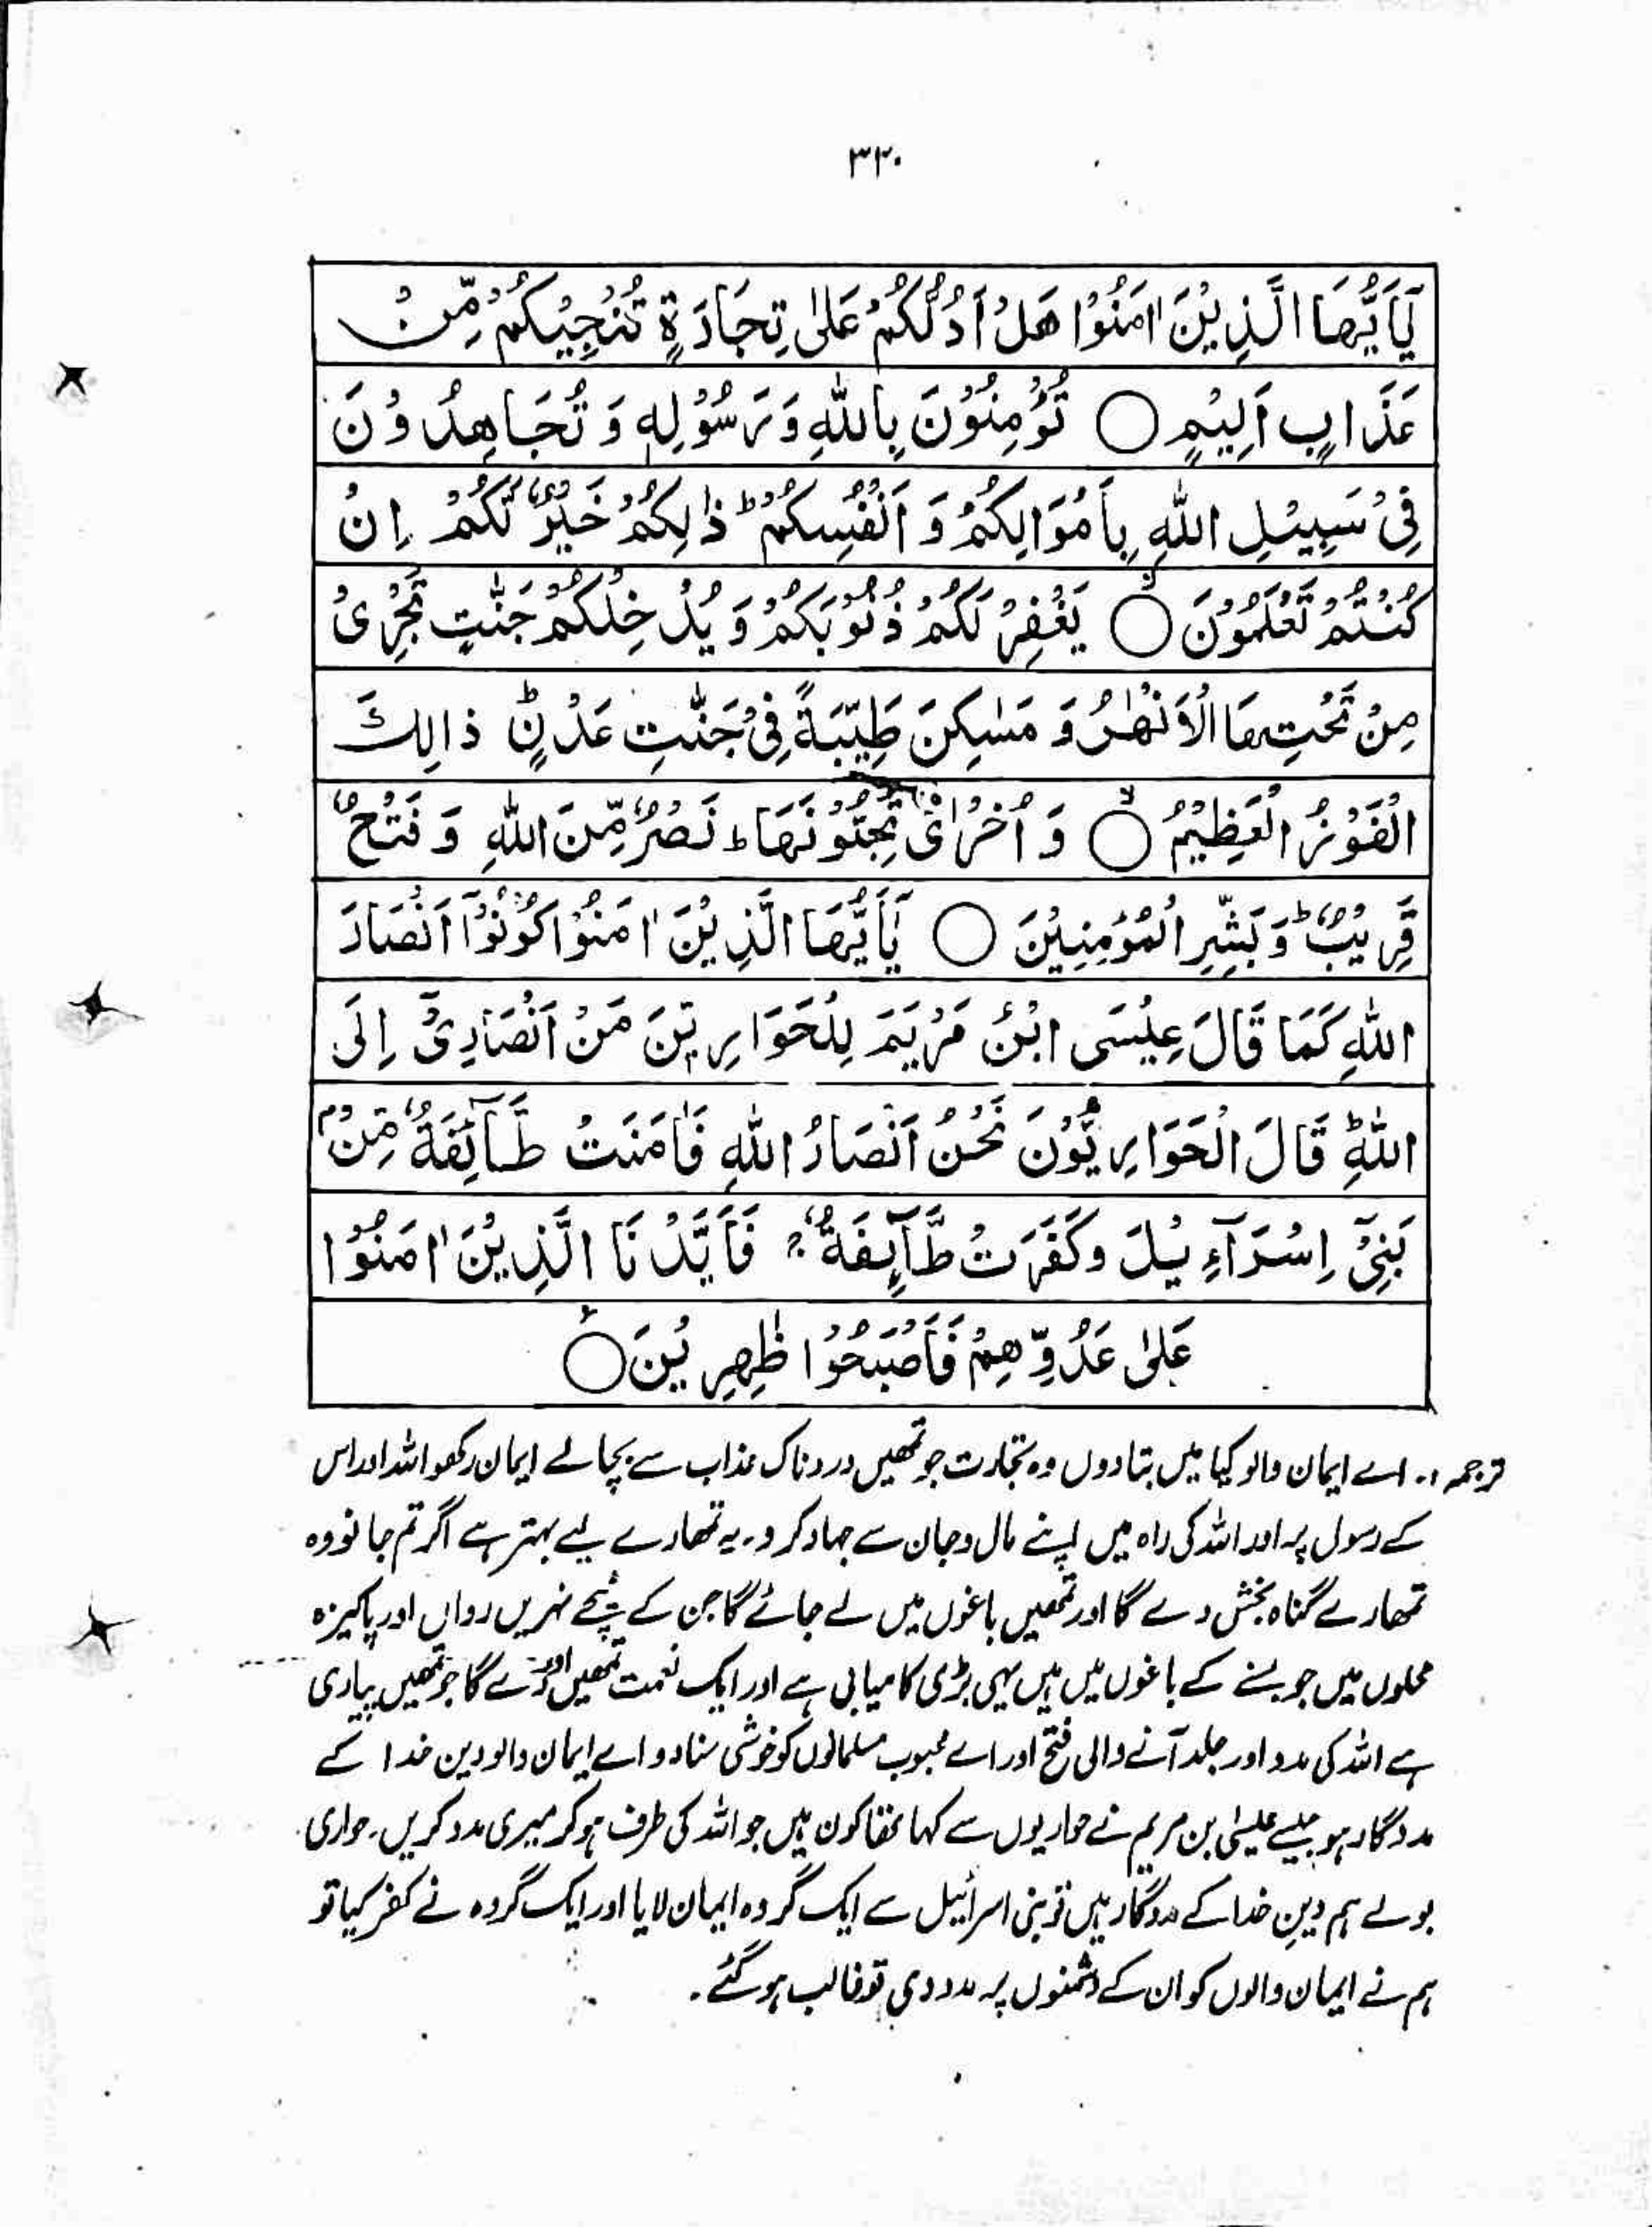 ۳۲۰
يٰۤاَيُّهَا الَّذِيْنَ اٰمَنُوْا هَلْ اَدُلُّكُمْ عَلٰى تِجَارَةٍ تُنْجِيْكُمْ مِّنْ
عَذَابٍ اَلِيْمٍ ○ تُؤْمِنُوْنَ بِاللّٰهِ وَرَسُوْلِهٖ وَ تُجَاهِدُوْنَ
فِىْ سَبِيْلِ اللّٰهِ بِاَمْوَالِكُمْ وَ اَنْفُسِكُمْ ؕ ذٰلِكُمْ خَيْرٌ لَّكُمْ اِنْ
كُنْتُمْ تَعْلَمُوْنَ ○ۙ يَغْفِرْ لَكُمْ ذُنُوْبَكُمْ وَ يُدْخِلْكُمْ جَنّٰتٍ تَجْرِىْ
مِنْ تَحْتِهَا الْاَنْهٰرُ وَ مَسٰكِنَ طَيِّبَةً فِىْ جَنّٰتِ عَدْنٍ ؕ ذالِكَ
الْفَوْزُ الْعَظِيْمُ ○ۙ وَ اُخْرٰى تُحِبُّوْنَهَا ؕ نَصْرٌ مِّنَ اللّٰهِ وَ فَتْحٌ
قَرِيْبٌ ؕ وَ بَشِّرِ الْمُؤْمِنِيْنَ ○ يٰۤاَيُّهَا الَّذِيْنَ اٰمَنُوْا كُوْنُوْۤا اَنْصَارَ
اللّٰهِ كَمَا قَالَ عِيْسَى ابْنُ مَرْيَمَ لِلْحَوَارِيّٖنَ مَنْ اَنْصَارِىْۤ اِلَى
اللّٰهِ ؕ قَالَ الْحَوَارِيُّوْنَ نَحْنُ اَنْصَارُ اللّٰهِ فَاٰمَنَتْ طَّآئِفَةٌ مِّنْۢ
بَنِىْۤ اِسْرَآءِيْلَ وكَفَرَتْ طَّآئِفَةٌ ۚ فَاَيَّدْنَا الَّذِيْنَ اٰمَنُوْا
عَلٰى عَدُوِّهِمْ فَاَصْبَحُوْا ظٰهِرِيْنَ ○
ترجمہ :۔ اے ایمان والو کیا میں بتادوں وہ تجارت جو تمھیں دردناک عذاب سے بچالے ایمان رکھو اللہ اور اس
کے رسول پر اور اللہ کی راہ میں اپنے مال و جان سے جہاد کرو۔ یہ تمھارے لیے بہتر ہے اگر تم جانو وہ
تمھارے گناہ بخش دے گا اور تمھیں باغوں میں لے جائے گا جن کے نیچے نہریں رواں اور پاکیزہ
محلوں میں جو بسنے کے باغوں میں ہیں یہی بڑی کامیابی ہے اور ایک نعمت تمھیں اور دے گا جو تمھیں پیاری
ہے اللہ کی مدد اور جلد آنے والی فتح اور اے محبوب مسلمانوں کو خوشی سنادو اے ایمان والو دین خدا کے
مددگار ہو جیسے عیسٰی بن مریم نے حواریوں سے کہا تھا کون ہیں جو اللہ کی طرف ہو کر میری مدد کریں۔ حواری
بولے ہم دینِ خدا کے مددگار ہیں تو بنی اسرائیل سے ایک گروہ ایمان لایا اور ایک گروہ نے کفر کیا تو
ہم نے ایمان والوں کو ان کے دشمنوں پر مدد دی تو غالب ہو گئے۔